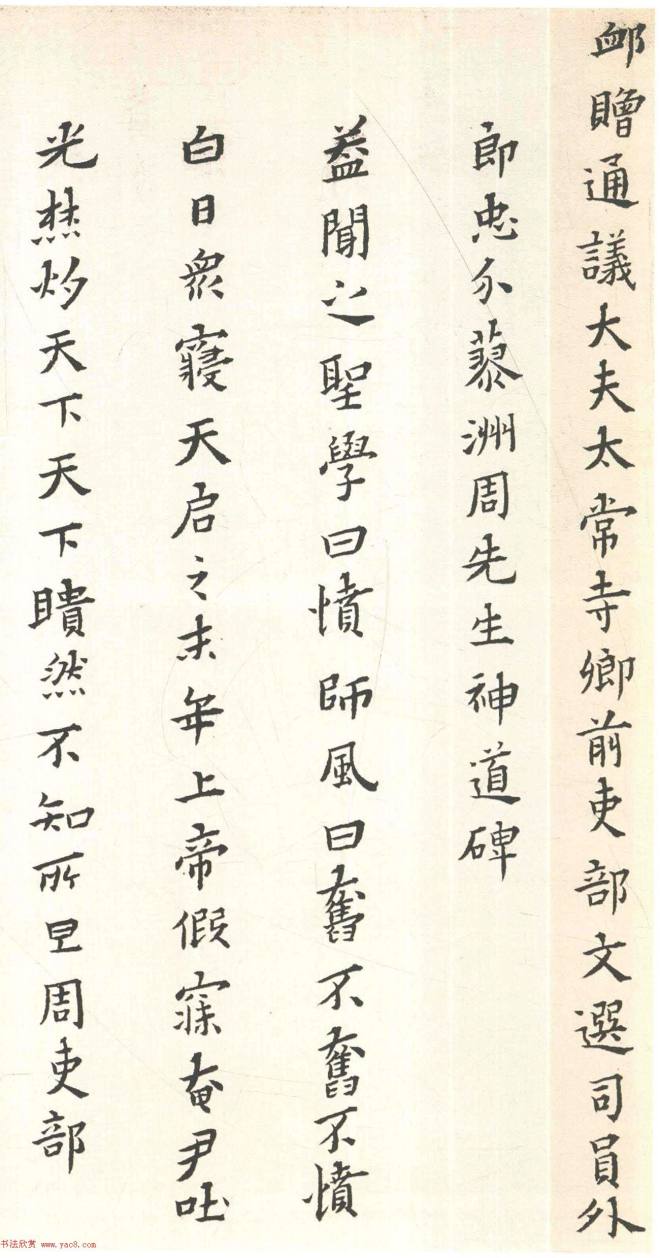 卹贈通議大夫太常寺卿前吏部文選司員外
郎忠介蓼洲周先生神道碑
蓋聞之聖學曰憤師風曰奮不奮不憤
白日衆寢天启之末年上帝假寐奄尹吐
光焚灼天下天下瞶然不知所㠯周吏部
书法欣赏 www.yac8.com